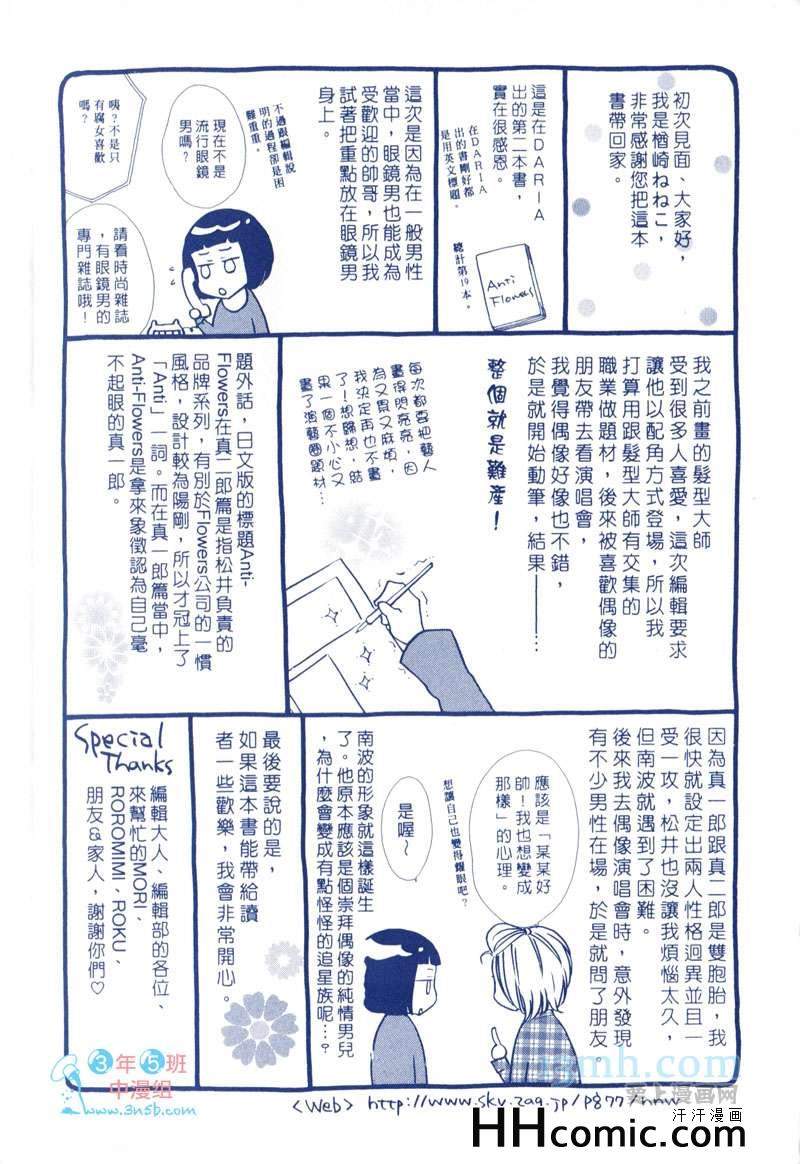 初次見面、大家好，
我是楢崎ねねこ，
非常感謝您把這本
書帶回家。
這是在DARIA
出的第二本書，
實在很感恩。
在DARIA
出的書剛好都
是用英文標題。
總計第19本。
Anti
Flowers
這次是因為在一般男性
當中，眼鏡男也能成為
受歡迎的帥哥，所以我
試著把重點放在眼鏡男
身上。
不過跟編輯說
明的過程卻是困
難重重。
現在不是
流行眼鏡
男嗎？
咦？不是只
有腐女喜歡
嗎？
請看時尚雜誌
，有眼鏡男的
專門雜誌哦！
我之前畫的髮型大師
受到很多人喜愛，這次編輯要求
讓他以配角方式登場，所以我
打算用跟髮型大師有交集的
職業做題材，後來被喜歡偶像的
朋友帶去看演唱會，
我覺得偶像好像也不錯，
於是就開始動筆，結果——
整個就是難產！
每次都要把藝人
畫得閃亮亮，因
為又累又麻煩，
我決定再也不畫
了！想歸想，結
果一個不小心又
畫了演藝圈題材…
題外話，日文版的標題Anti-
Flowers在真一郎篇是指松井負責的
品牌系列，有別於Flowers公司的一慣
風格，設計較為陽剛，所以才冠上了
「Anti」一詞。而在真一郎篇當中，
Anti-Flowers是拿來象徵認為自己毫
不起眼的真一郎。
因為真一郎跟真二郎是雙胞胎，我
很快就設定出兩人性格迥異並且一
受一攻，松井也沒讓我煩惱太久，
但南波就遇到了困難。
後來我去偶像演唱會時，意外發現
有不少男性在場，於是就問了朋友。
應該是「某某好
帥！我也想變成
那樣」的心理。
想讓自己也變得耀眼吧？
是喔～
南波的形象就這樣誕生
了。他原本應該是個崇拜偶像的純情男兒
，為什麼會變成有點怪怪的追星族呢…？
最後要說的是，
如果這本書能帶給讀
者一些歡樂，我會非常開心。
Special
Thanks
編輯大人、編輯部的各位、
來幫忙的MORI、
ROROMIMI、ROKU、
朋友＆家人，謝謝你們♡
3年5班
中漫組
www.3n5b.com
<Web> http://www.sky.zaq.jp/p877/nnw
汗汗漫画
HHcomic.com